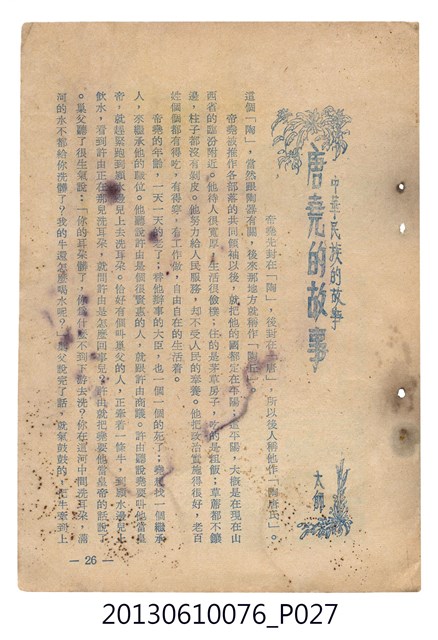 中華民族的故事
唐堯的故事
太師
帝堯先封在「陶」，後封在「唐」，所以後人稱他作「陶唐氏」。
這個「陶」，當然跟陶器有關，後來那地方就稱作「陶丘」。
帝堯被推作各部落的共同領袖以後，就把他的國都定在平陽；平陽，大概是在現在山
西省的臨汾附近。他待人很寬厚，生活很儉樸；住的是茅草房子，吃的是粗飯；草蓆都不鑲
邊，柱子都沒有剝皮。他努力給人民服務，却不受人民的奉養。他把政治實施得很好，老百
姓個個都有得吃，有得穿，有工作做，自由自在的生活着。
帝堯的年齡，一天一天的老了；替他辦事的大臣，也一個一個的死了；堯想找一個繼承
人，來繼承他的職位。他聽說許由是個很賢惠的人，就跟許由商議。許由聽說堯要叫他當皇
帝，就趕緊跑到潁水邊兒上去洗耳朵。恰好有個叫巢父的人，正牽着一條牛，到潁水邊兒上
飲水，看到許由正在那兒洗耳朵，就問許由是怎麼回事兒？許由就把堯要他當皇帝的話說了
。巢父聽了很生氣說：「你的耳朵髒了，你為什麼不到下游去洗？你在這河中間洗耳朵，滿
河的水不都給你洗髒了？我的牛還怎麼喝水呢？」巢父說完了話，就氣鼓鼓的，把牛牽到上
— 26 —
20130610076_P027